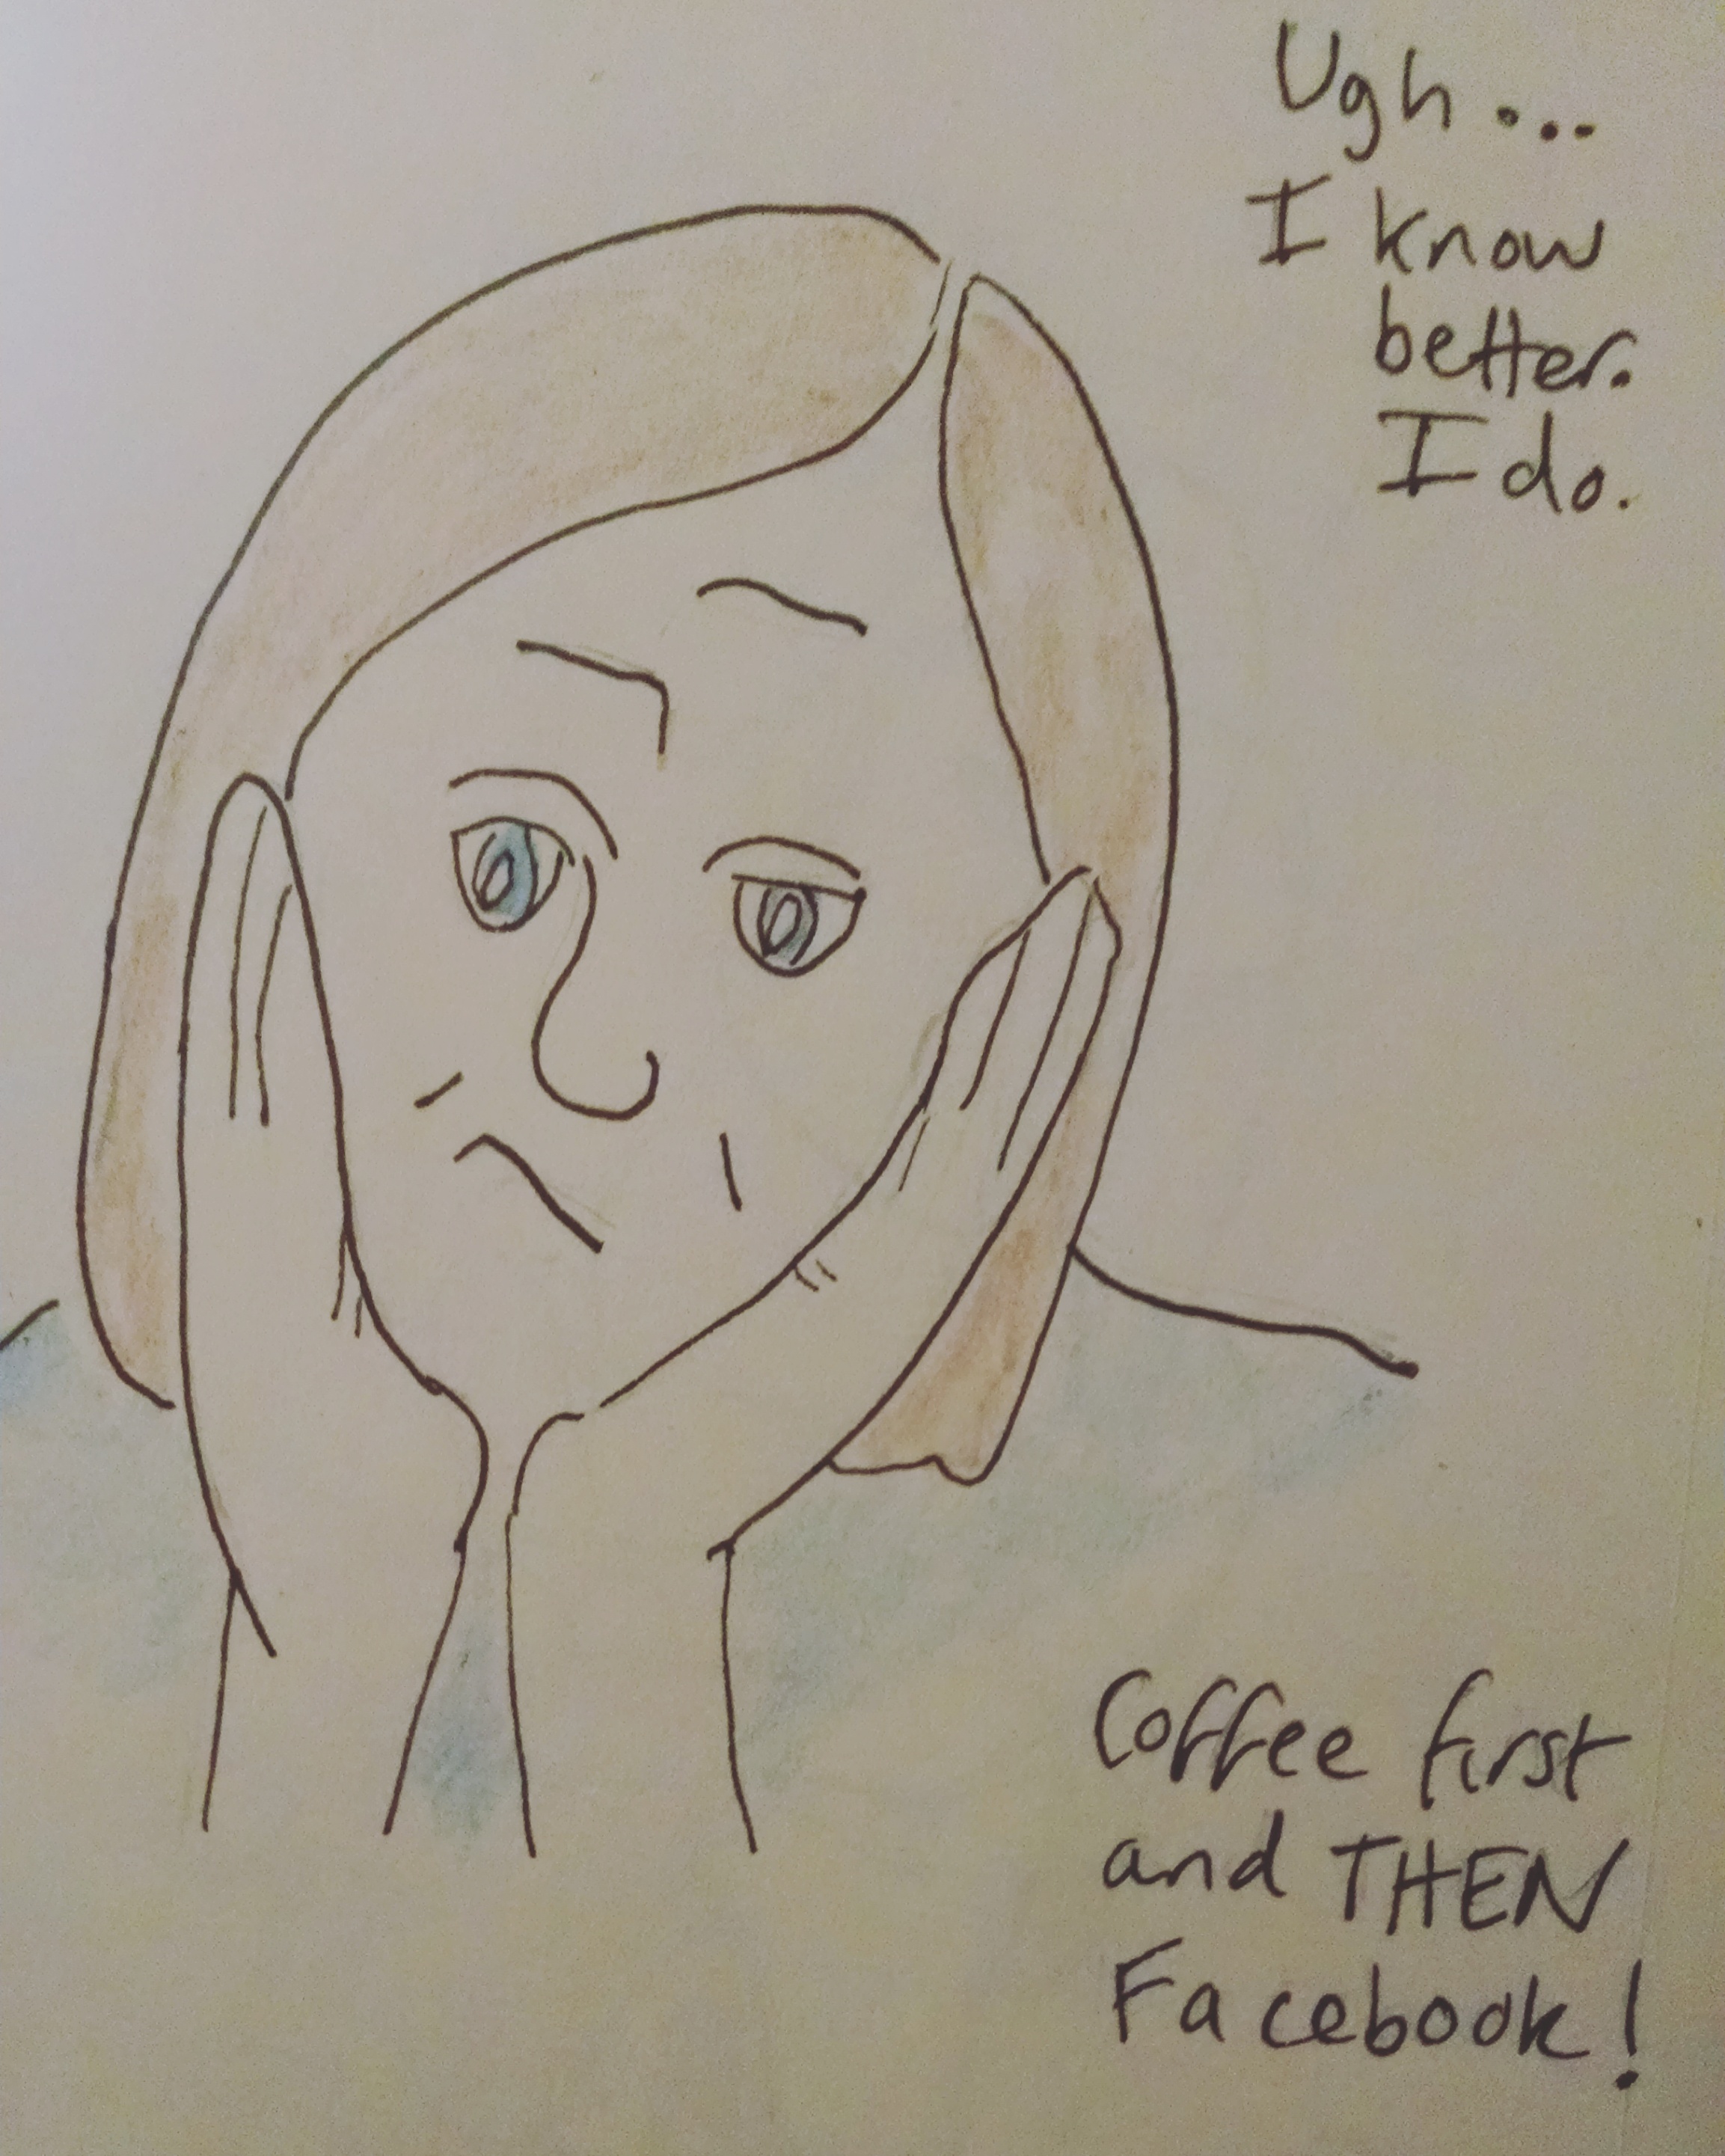 Ugh...
I know
better.
I do.
Coffee first
and THEN
Facebook!